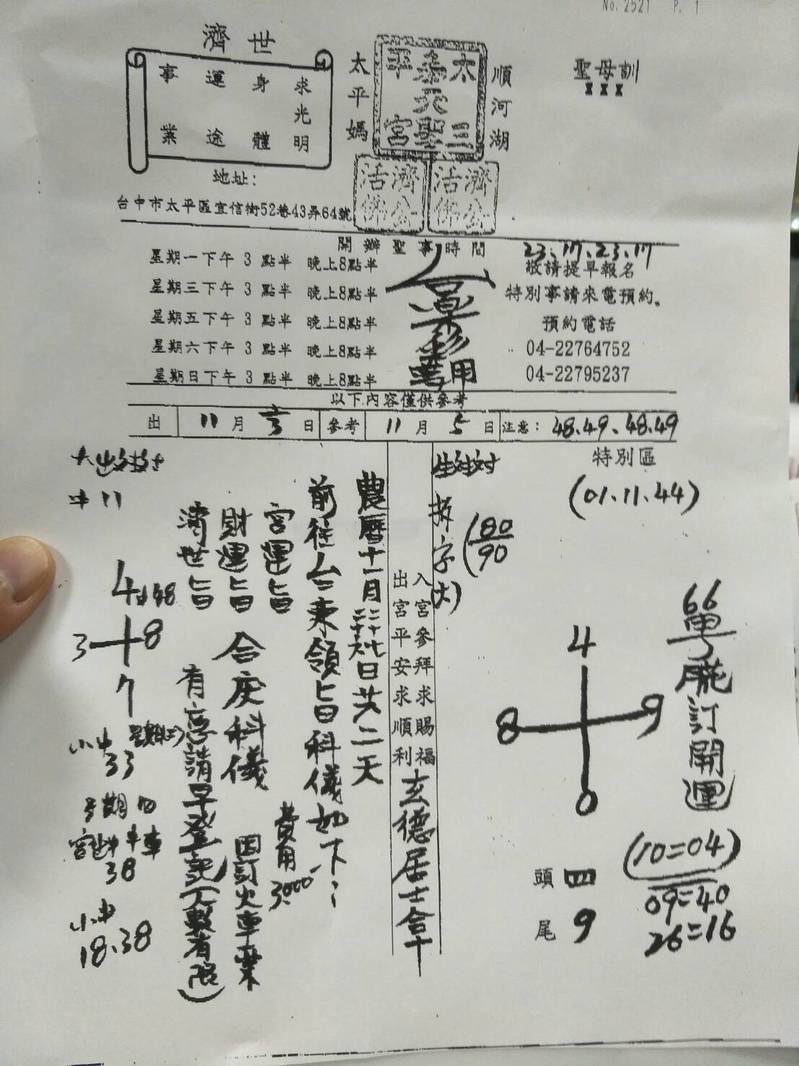 No. 2521 P. 1
濟世
求光明
身體
運途
事業
地址：
台中市太平區宜信街52巷43弄64號
太平媽
順河湖
聖母訓
濟公活佛
濟公活佛
開辦聖事時間
星期一下午 3 點半 晚上8點半
星期三下午 3 點半 晚上8點半
星期五下午 3 點半 晚上8點半
星期六下午 3 點半 晚上8點半
星期日下午 3 點半 晚上8點半
23.17.23.17
敬請提早報名
特別事請來電預約。
預約電話
04-22764752
04-22795237
以下內容僅供參考
出 11 月 日 參考 11 月 5 日 注意：48.49.48.49
特別區
(01.11.44)
66
訂開運
4
8 9
0
(10=04)
09=40
26=16
頭 四
尾 9
拆字
(80
90
入宮參拜求賜福
出宮平安求順利
玄德居士合十
農曆十一月 日共二天
前往台東領旨科儀如下：
宮運旨
財運旨
濟世旨
合庚科儀
費用3000
因訂火車票
有意請早登記(人數有限)
11
4
3 8
7
33
38
18.38